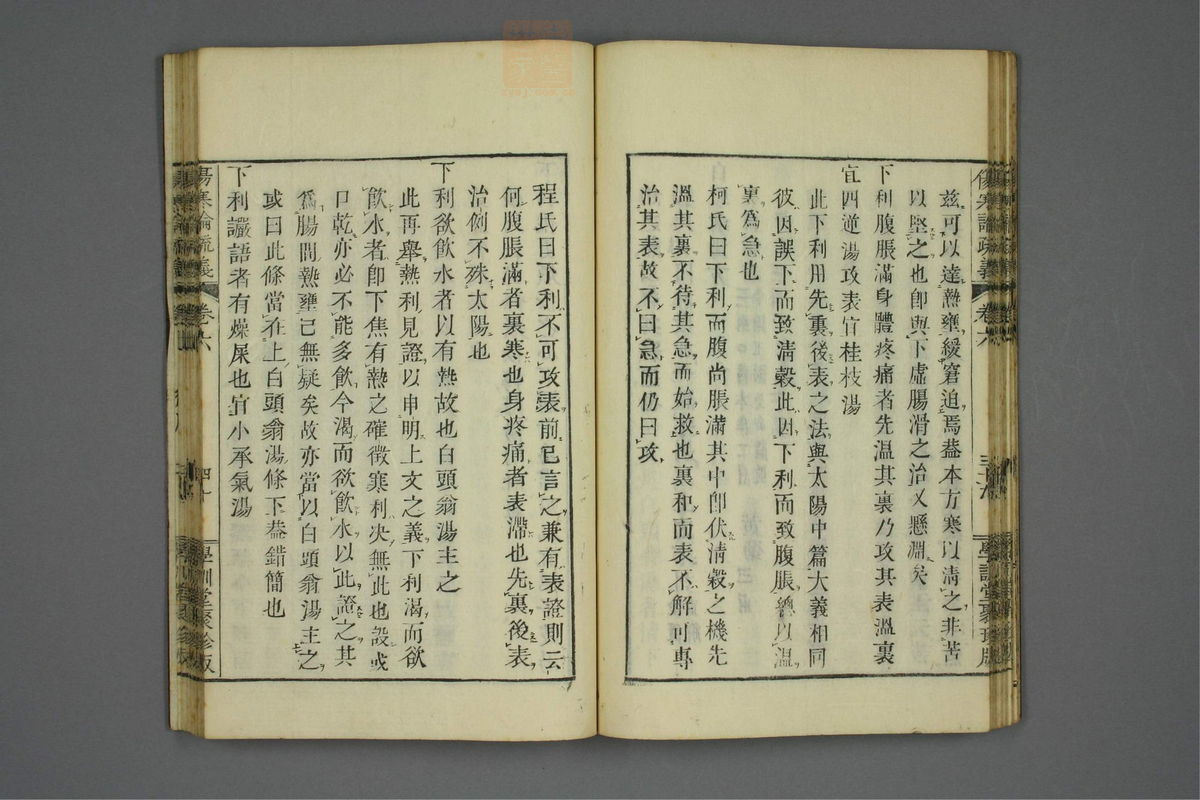 傷寒論疏義
卷六
學訓堂聚珍版
茲可以達熱壅緩窘迫焉蓋本方寒以清之非苦
以堅之也卽與下虛腸滑之治乂懸淵矣
下利腹脹滿身體疼痛者先溫其裏乃攻其表溫裏
宜四逆湯攻表宜桂枝湯
此下利用先裏後表之法與太陽中篇大義相同
彼因誤下而致清穀此因下利而致腹脹總以溫
裏爲急也
柯氏曰下利而腹尚脹滿其中卽伏清穀之機先
溫其裏不待其急而始救也裏和而表不解可專
治其表故不曰急而仍曰攻
程氏曰下利不可攻表前已言之兼有表證則云
何腹脹滿者裏寒也身疼痛者表滯也先裏後表
治例不殊太陽也
下利欲飮水者以有熱故也白頭翁湯主之
此再舉熱利見證以申明上文之義下利渴而欲
飮水者卽下焦有熱之確徵寒利決無此也設或
口乾亦必不能多飮今渴而欲飮水以此證之其
爲腸間熱壅已無疑矣故亦當以白頭翁湯主之
或曰此條當在上白頭翁湯條下蓋錯簡也
下利讝語者有燥屎也宜小承氣湯
傷寒論疏義
卷六
四十
學訓堂聚珍版